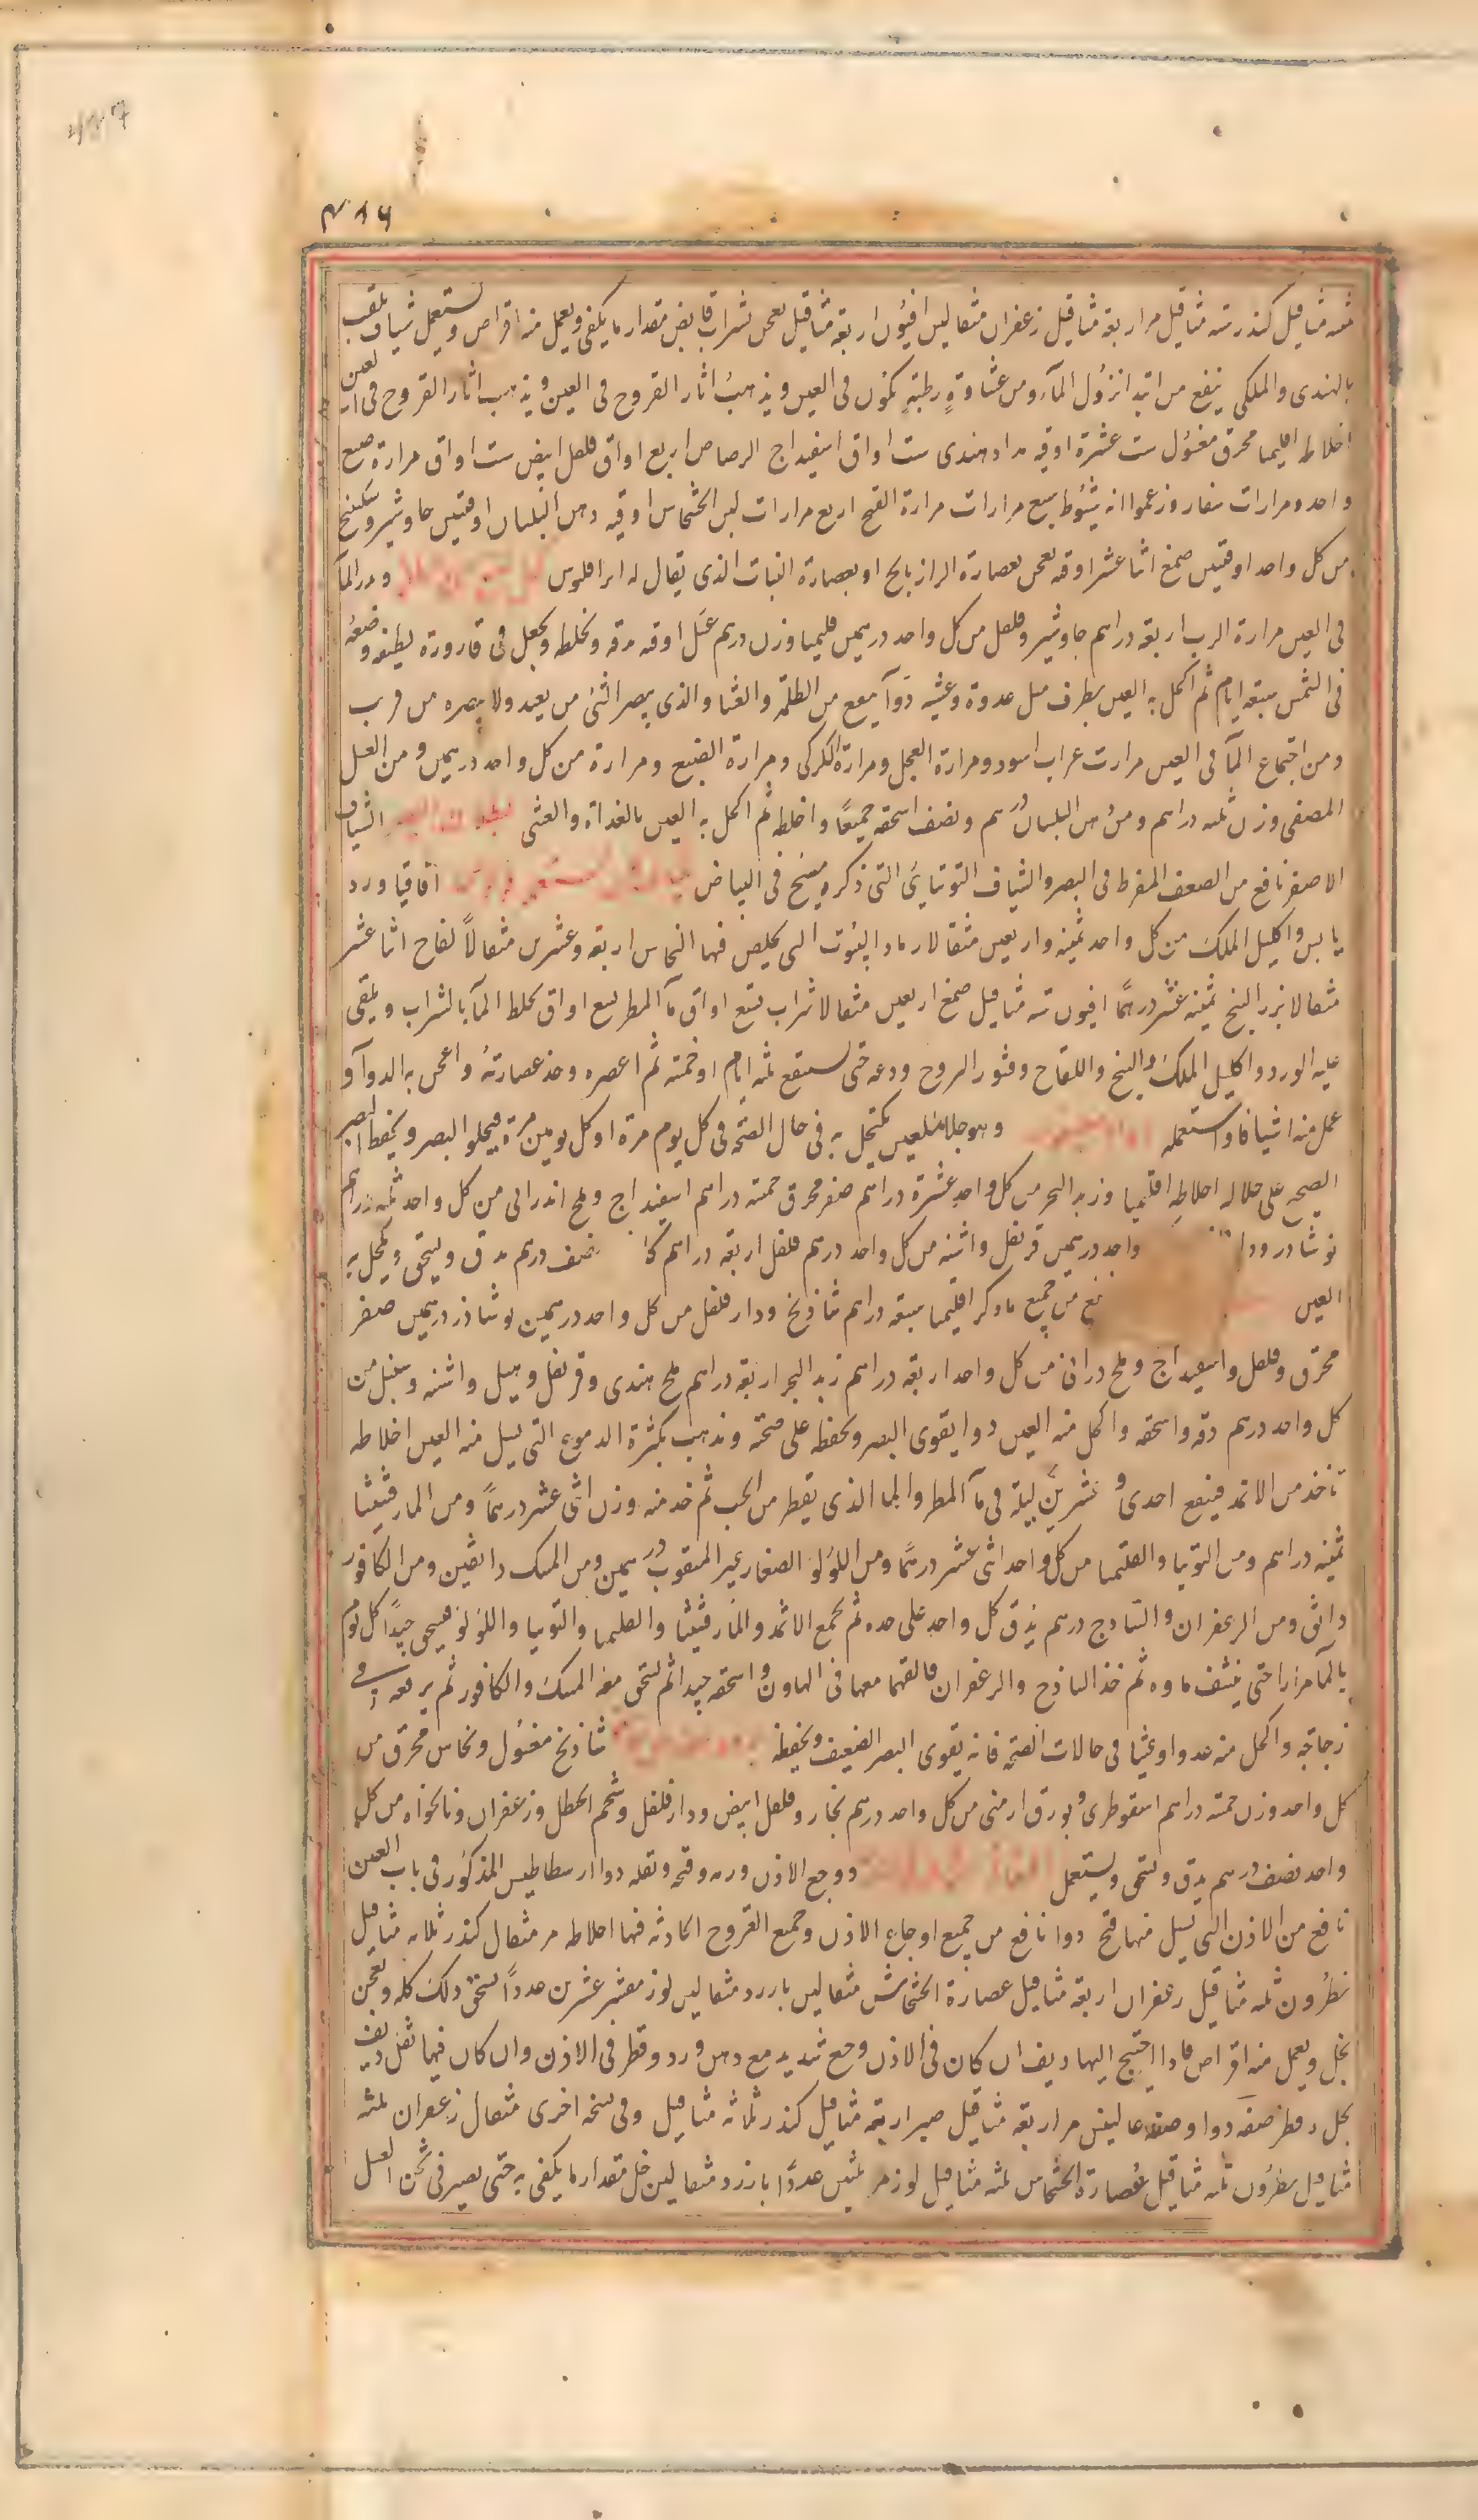 ٤١٦
ثمنه مثاقيل كندر سته مثاقيل مر اربعة مثاقيل زعفران مثقالين افيون اربعة مثاقيل يعجن بشراب قابض مقدار ما يكفى ويعمل منه اقراص ويستعمل شياف يلقب
بالهندى والملكى ينفع من ابتدا نزول المآء ومن غشاوة رطبة تكون فى العين ويذهب اثار القروح فى العين ويذهب اثار القروح فى
اخلاطه اقليميا محرق مغسول ست عشرة اوقيه مداد هندى ست اواق اسفيداج الرصاص اربع اواق فلفل ابيض ست اواق مرارة ضبع
واحد ومرارات وزعموا انه شبوط سبع مرارات مرارة القبج اربع مرارات لبن الخشخاش اوقيه دهن البلسان اوقيتين جاوشير وسكبينج
من كل واحد اوقيتين صمغ اثنا عشر اوقيه يعجن بعصارة الرازيانج او بعصارة النبات الذى يقال له ابراقلوس
فى العين مرارة الدب اربعة دراهم جاوشير وفلفل من كل واحد درهمين قليميا وزن درهم عسل اوقيه دقه وتخلطه ويجعل فى قارورة نظيفه وضعه
فى الشمس سبعة ايام ثم اكحل به العين بطرف ميل غدوة وعشيه دوآ ينفع من الظلمة والغشا والذى يبصر الشئ من بعيد ولا يبصره من قرب
ومن اجتماع المآ فى العين مرارت غراب اسود ومرارة العجل ومرارة الكركى ومرارة الضبع ومرارة من كل واحد درهمين ومن العسل
المصفى وزن ثمنه دراهم ومن دهن البلسان درهم ونصف اسحقه جميعاً واخلطه ثم اكحل به العين بالغداة والعشى الشياف
الاصفر نافع من الضعف المفرط فى البصر والشياف التوتيائى التى ذكره مسيح فى البياض اقاقيا ورد
يابس واكليل الملك من كل واحد ثمنيه واربعين مثقالا رماد البيوت التى يخلص فيها النحاس اربعة وعشرين مثقالاً لفاح اثنا عشر
مثقالا بزر البنج ثمنيه عشر درهماً افيون سته مثاقيل صمغ اربعين مثقالا شراب تسع اواق مآ المطر سبع اواق يخلط المآ بالشراب ويلقى
عليه الورد واكليل الملك والبنج واللفاح وقشور اليبروح ودعه حتى يستنقع ثلثه ايام او خمسه ثم اعصره وخذ عصارته واعجن به الدوآ و
عمل منه اشيافا واستعمله وهو جلا للعين يكتحل به فى حال الصحه فى كل يوم مرة او كل يومين مرة فيجلو البصر ويحفظ البصر
الصحيح على حاله اخلاطه اقليميا وزبد البحر من كل واحد عشرة دراهم صفر محرق خمسه دراهم اسفيداج وملح اندرانى من كل واحد ثلثه دراهم
نوشادر واحد درهمين قرنفل واشنه من كل واحد درهم فلفل اربعة دراهم نصف درهم يدق ويستحق ويكحل به
العين من جميع ما ذكر اقليميا سبعه دراهم شاذنج ودار فلفل من كل واحد درهمين نوشاذر درهمين صفر
محرق وفلفل واسفيداج وملح درانى من كل واحد اربعة دراهم زبد البحر اربعة دراهم ملح هندى وقرنفل وهيل واشنه وسنبل من
كل واحد درهم دقه واسحقه واكحل منه العين دوا يقوى البصر ويحفظه على صحته ويذهب بكثرة الدموع التى يسيل منه العين اخلاطه
تاخذ من الاثمد فينقع احدى و عشرين ليلة فى مآ المطر والما الذى يقطر من الحب ثم خذ منه وزن اثنى عشر درهماً ومن المارقشيثا
ثمنيه دراهم ومن التوتيا والقليميا من كل واحد اثنى عشر درهماً ومن اللؤلؤ الصغار غير المثقوب درهمين ومن المسك دانقين ومن الكافور
دانق ومن الزعفران والساذج درهم يدق كل واحد على حده ثم يجمع الاثمد والمارقشيثا والقليميا والتوتيا واللؤلؤ فيسحق جيداً كل يوم
بالمآ مرارا حتى ينشف ماوه ثم خذ الساذج والزعفران فالقهما معها فى الهاون واسحقه جيدا ثم يستحق معه المسك والكافور ثم يرفعه فى
زجاجه واكحل منه غدوا وعشيا فى حالات الصحه فانه يقوى البصر الضعيف ويحفظه شاذنج مغسول ونحاس محرق من
كل واحد وزن خمسه دراهم اسقوطرى وبورق ارمنى من كل واحد درهم نجار وفلفل ابيض ودار فلفل وشحم الحنظل وزعفران ونانخواه من كل
واحد نصف درهم يدق ويستحق ويستعمل ووجع الاذن ورمه وقيحه وثقله دوا ارسطاطيس المذكور فى باب العين
نافع من الاذن التى يسيل منها قيح دوا نافع من جميع اوجاع الاذن وجميع القروح الحادثه فيها اخلاطه مر مثقال كندر ثلاثه مثاقيل
نطرون ثلثه مثاقيل زعفران اربعة مثاقيل عصارة الخشخاش مثقالين بارزد مثقالين لوز مقشر عشرين عدداً يستحق ذلك كله ويعجن
بخل ويعمل منه اقراص فاذا احتيج اليها ديف ان كان فى الاذن وجع شديد مع دهن ورد وقطر فى الاذن وان كان فيها ثقل ديف
بخل وقطر صفه دوا وصفه جالينوس مر اربعة مثاقيل صبر اربعة مثاقيل كندر ثلاثه مثاقيل وفى نسخه اخرى مثقال زعفران ثلثه
مثاقيل نطرون ثلثه مثاقيل عصارة الخشخاش ثلثه مثاقيل لوز مر ثلثين عدداً بارزد مثقالين خل مقدار ما يكفى به حتى يصير فى ثخن العسل